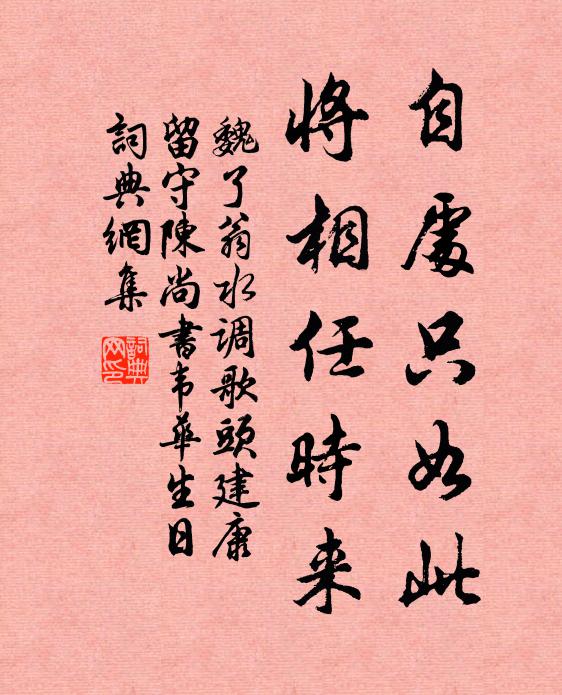 自處只如此
將相任時来
魏了翁水调歌頭建康
留守陳尚書韦華生日
詞典網集
詞典
网印